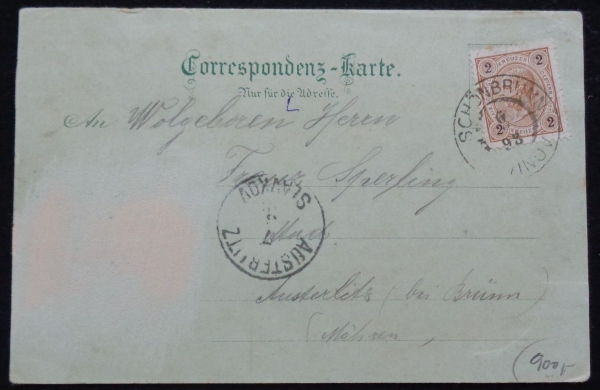 Correspondenz-Karte.
Nur für die Adresse.
2 KREUZER 2
2 2
SCHÖNBRUNN
98
An Wolgeboren Herrn
Franz Sperling
Stadt
SLAVKOV
AUSTERLITZ
Austerlitz (bei Brünn)
(Mähren)
(900,-